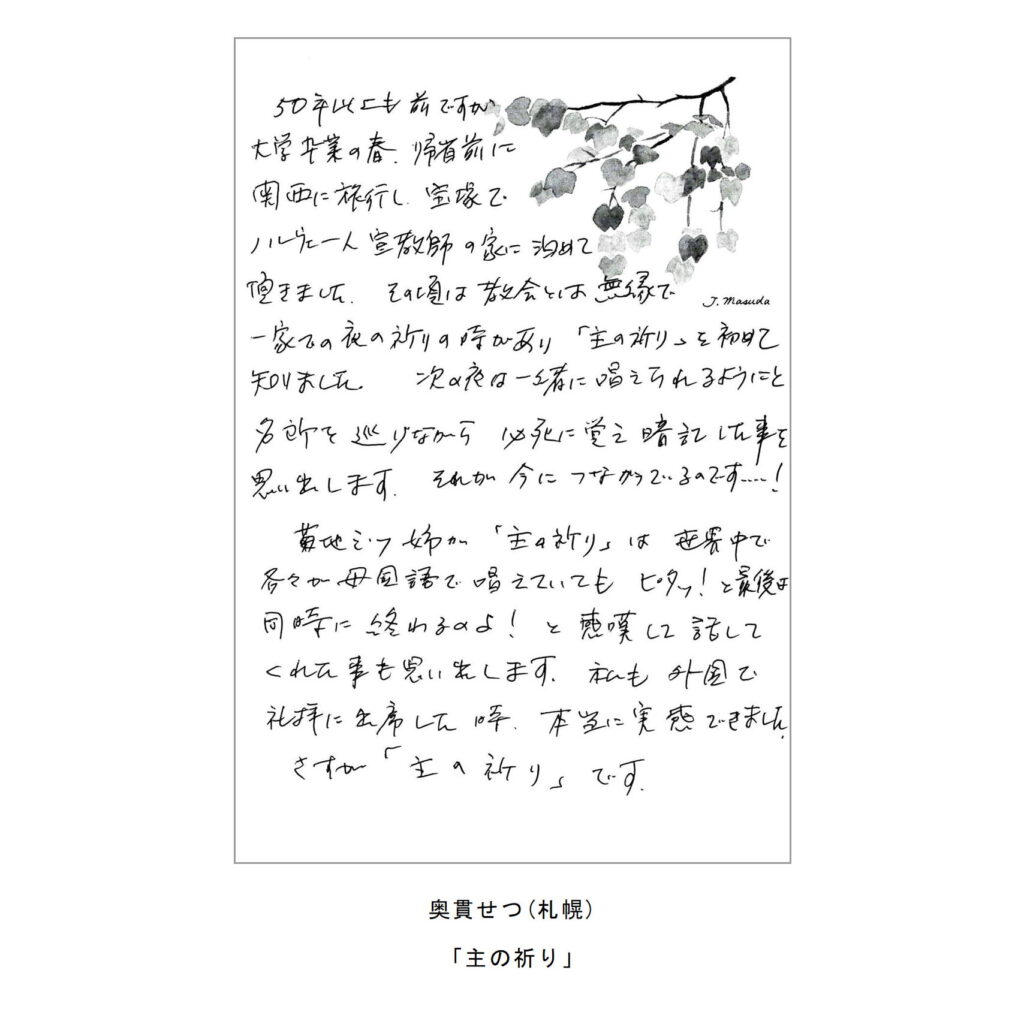 50年以上も前ですが
大学卒業の春、帰省前に
関西に旅行し、宝塚で
ノルウェー人宣教師の家に泊めて
頂きました。その頃は教会とは無縁で
J. Masuda
一家での夜の祈りの時があり「主の祈り」を初めて
知りました。次の夜は一緒に唱えられるようにと
名所を巡りながら必死に覚え暗記した事を
思い出します。それが今につながっているのです……!
菊地 姉が「主の祈り」は世界中で
各々が母国語で唱えていてもピタッ!と最後は
同時に終わるのよ!と感嘆して話して
くれた事も思い出します。私も外国で
礼拝に出席した時、本当に実感できました。
さすが「主の祈り」です。
奥貫せつ(札幌)
「主の祈り」